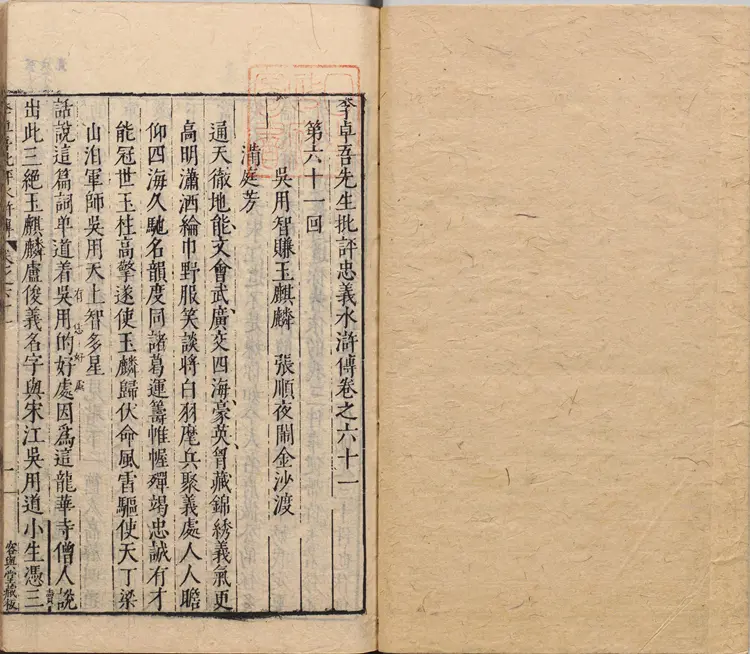 李卓吾先生批評忠義水滸傳卷之六十一
第六十一回
吳用智賺玉麒麟　張順夜鬧金沙渡
滿庭芳
通天徹地能文會武廣交四海豪英胷藏錦綉義氣更
高明瀟洒綸巾野服笑談將白羽麾兵聚義處人人瞻
仰四海久馳名韻度同諸葛運籌帷幄殫竭忠誠有才
能冠世玉柱高擎遂使玉麟歸伏命風雷驅使天丁梁
山泊軍師吳用天上智多星
話說這篇詞单道着吳用的好處因爲這龍華寺僧人說
出此三絕玉麒麟盧俊義名字與宋江吳用道小生憑三
容與堂藏板